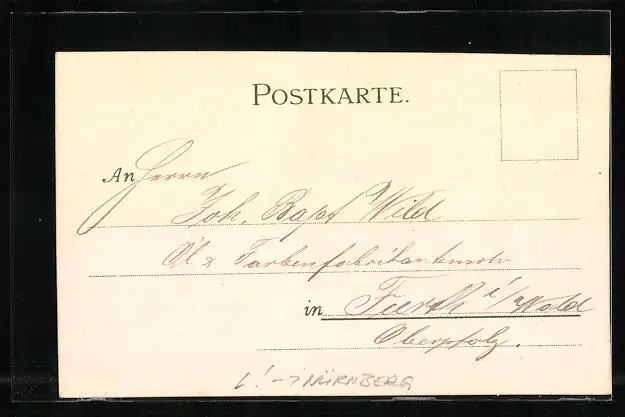 POSTKARTE.
An Herrn
Joh. Bapt Wild
Öl & Farbenfabrikantensw
in Furth i/Wald
Oberpfalz.
L! -> NÜRNBERG